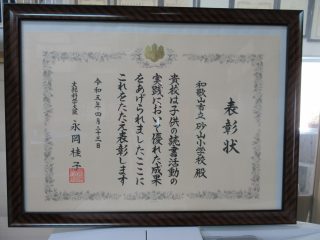 表彰状
和歌山市立砂山小学校 殿
貴校は子供の読書活動の
実践において優れた成果
をあげられましたここに
これをたたえ表彰します
令和五年四月二十三日
文部科学大臣 永岡桂子